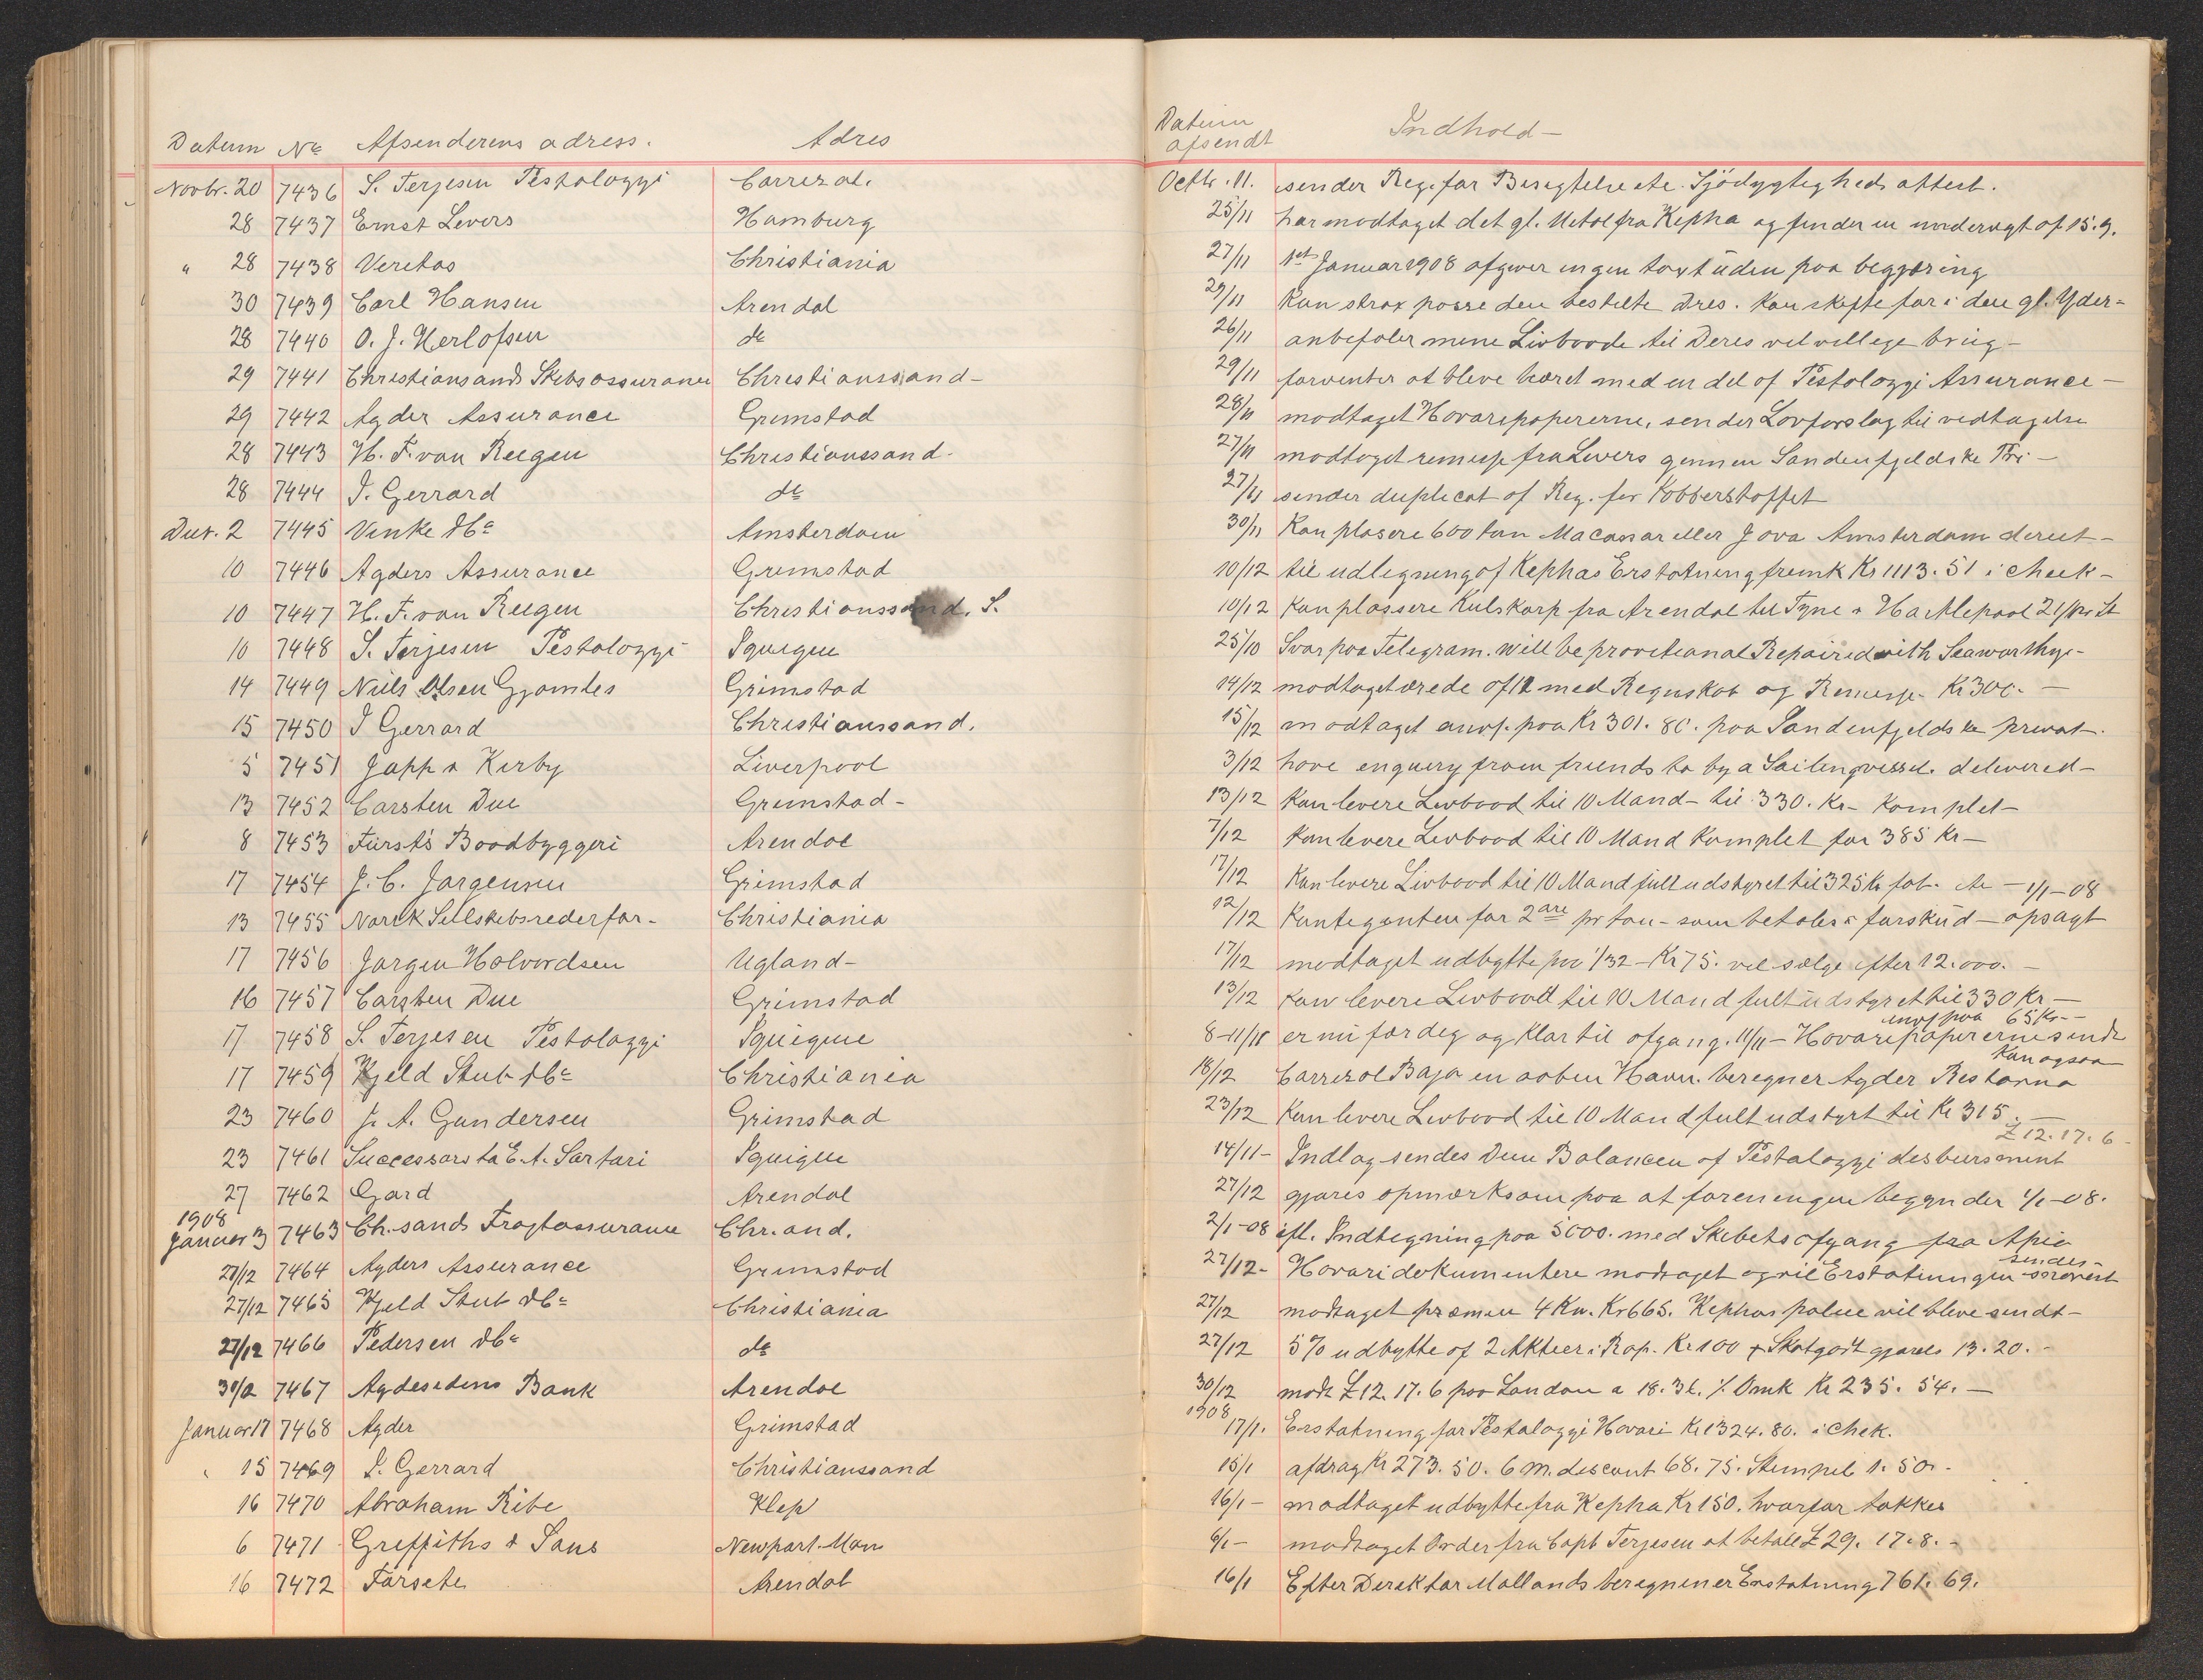 Datum No Afsenderens adress. Adres
Novbr. 20 7436 S. Terjesen Pestalozzi Carrizal.
28 7437 Ernst Levers Hamburg
" 28 7438 Veritas Christiania
30 7439 Carl Hansen Arendal
28 7440 O. J. Herlofsen do
29 7441 Christiansands Skibsassurance Christianssand-
29 7442 Agder Assurance Grimstad
28 7443 H. F. van Reegen Christianssand-
28 7444 I. Gerrard do
Decr. 2 7445 Vinke & Co Amsterdam
10 7446 Agders Assurance Grimstad
10 7447 H. F. van Reegen Christianssand. S.
10 7448 S. Terjesen Pestalozzi Iquique
14 7449 Niels Olsen Gjamles Grimstad
15 7450 I Gerrard Christianssand.
5 7451 Japp & Kirby Liverpool
13 7452 Carsten Due Grimstad-
8 7453 Fürst's Baadbyggeri Arendal
17 7454 J. C. Jørgensen Grimstad
13 7455 Norsk Seilskibsrederfor- Christiania
17 7456 Jørgen Halvordsen Ugland-
16 7457 Carsten Due Grimstad
17 7458 S. Terjesen Pestalozzi Iquique
17 7459 Kjeld Stub & Co Christiania
23 7460 J. A. Gundersen Grimstad
23 7461 Successors to E. A. Sartori Iquique
27 7462 Gard Arendal
1908
Januar 3 7463 Ch.sands Fragtassurance Chr.and.
28/12 7464 Agders Assurance Grimstad
27/12 7465 Kjeld Stub & Co Christiania
27/12 7466 Pedersen & Co do
30/12 7467 Agdesidens Bank Arendal
Januar 17 7468 Agder Grimstad
" 15 7469 I. Gerrard Christianssand
16 7470 Abraham Ribe Klep
6 7471 Griffiths & Sons Newport. Mon
16 7472 Forsete Arendal
Datum
afsendt Indhold-
Octb. 11. sender Reg. for Besigtelse etc. Sjødygtigheds attest.
25/11 har modtaget det gl. Metal fra Kepha og finder en undervægt af 15.9.
27/11 1st Januar 1908 afgiver ingen text uden paa begjæring
29/11 Kan strax passe den bestilte Dres. Kan skifte for i den gl. Yder-
26/11 anbefaler mine Livbaade til Deres velvillige brug-
29/11 forventer at blive buret med en del af Pestalozzi Assurance-
28/11 modtaget Havaripapirerne, sender Lovforslag til vedtagelse
27/11 modtaget remisse fra Levers gennem Søndenfjeldske Pri-
27/11 sender duplicat af Reg. for Kobberstoffet
30/11 Kan plasere 600 ton Macassar eller Java Amsterdam direct-
10/12 til udligning af Kephas Erstatning fremk Kr 1113. 51 i check-
10/12 Kan plassere Kulskarp fra Arendal til Tyne & Hartlepool 21/ pr St
25/10 Svar paa Telegram. will be provitional Repaired with Seaworthy-
14/12 modtaget ærede af 12 med Regnskab og Remisse- Kr 300.-
15/12 modtaget anvs. paa Kr 301. 80. paa Søndenfjeldske privat-
3/12 have enquery from friends to by a Sailingvessel. delivered-
13/12 Kan levere Livbaad til 10 Mand- til 330. Kr- Komplet-
7/12 kan levere Livbaad til 10 Mand Komplet for 385 Kr-
17/12 Kan levere Livbaad til 10 Mand fullt udstyret til 325 Kr fob. etc - 1/1-08
12/12 Kontegenten for 2 øre pr ton- som betales i forskud- opsagt
17/12 modtaget udbytte paa 1/32 - Kr 75. vil sælge efter 12.000.-
13/12 Kan levere Livbaad til 10 Mand fult udstyret til 330 Kr-
anvs paa 65 Kr--
8-11/11 er nu færdig og Klar til afgang. 11/11- Havaripapirerne sendt
Kan ogsaa
18/12 Carrizal Bajo en aaben Havn. beregner Agder
23/12 Kan levere Livbaad til 10 Mand fult udstyrt til Kr 315.-
£ 12. 17. 6-
14/11- Indlag sendes Dem Balancen af Pestalozzi desbursement
27/12 gjøres opmærksom paa at foreningen begynder 1/1-08.
2/1-08 ifl. Indtegning paa 5000. med Skibets afgang fra
sendes-
27/12- Havaridokumentere modtaget og vil Erstatningen
27/12 modtaget præmien 4 Kv. Kr 665. Kephas police vil blive sendt-
27/12 5% udbytte af 2 Aktier i Rap. Kr 100 + Skatgodt gjøres 13. 20.-
30/12 modt £ 12. 17. 6 paa London a 18. 36. % Omk Kr 235. 54.-
1908
17/1. Erstatning for Pestalozzi Havari Kr 1324. 80. i Chek.
15/1 afdrag Kr 273. 50. 6 M. discont 68. 75. Stempel 1. 50.-
16/1- modtaget udbytte fra Kepha Kr 150. hvorfor takkes
6/1- modtaget Order fra Capt Terjesen at betale £ 29. 17. 8.-
16/1 Efter Direktør Mollands beregninger Erstatning 761. 69.